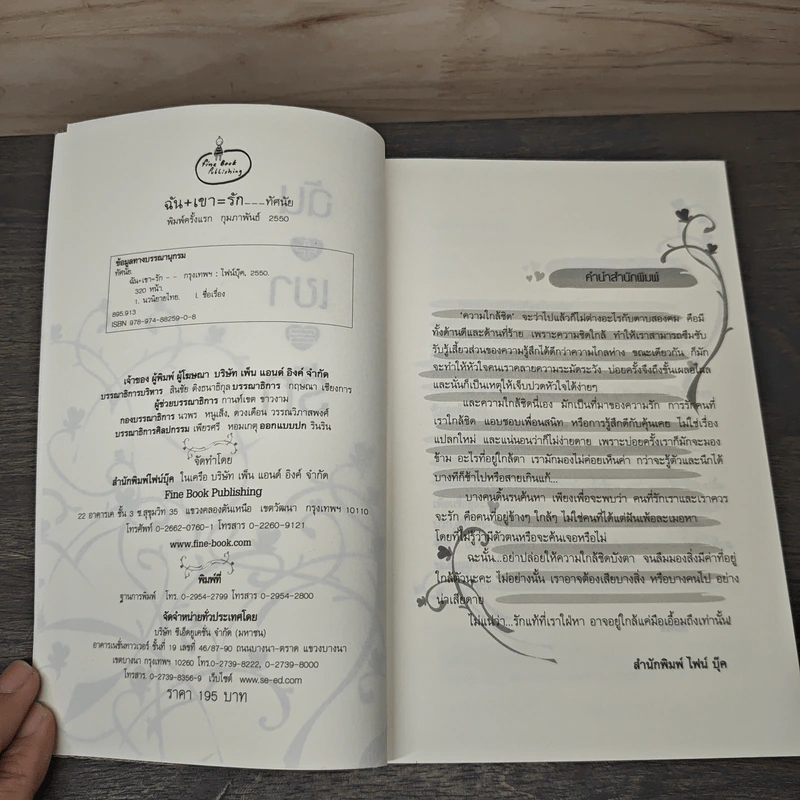 Fine Book
Publishing
ฉัน+เขา=รัก___ทัศนัย
พิมพ์ครั้งแรก กุมภาพันธ์ 2550
ข้อมูลทางบรรณานุกรม
ทัศนัย
ฉัน+เขา=รัก - - กรุงเทพฯ : ไฟน์บุ๊ค, 2550.
320 หน้า.
1. นวนิยายไทย. I. ชื่อเรื่อง
895.913
ISBN 978-974-88259-0-8
เจ้าของ ผู้พิมพ์ ผู้โฆษณา บริษัท เพ็น แอนด์ อิงค์ จำกัด
บรรณาธิการบริหาร สินชัย ดิงธนาธิกุล บรรณาธิการ กฤษณา เชียงการ
ผู้ช่วยบรรณาธิการ กานท์เขต ขาวงาม
กองบรรณาธิการ นวพร หนูเส็ง, ดวงเดือน วรรณวิภาสพงศ์
บรรณาธิการศิลปกรรม เพียรศรี หอมเกตุ ออกแบบปก รินริน
จัดทำโดย
สำนักพิมพ์ไฟน์บุ๊ค ในเครือ บริษัท เพ็น แอนด์ อิงค์ จำกัด
Fine Book Publishing
22 อาคารเค ชั้น 3 ซ.สุขุมวิท 35 แขวงคลองตันเหนือ เขตวัฒนา กรุงเทพฯ 10110
โทรศัพท์ 0-2662-0760-1 โทรสาร 0-2260-9121
www.fine-book.com
พิมพ์ที่
ฐานการพิมพ์ โทร. 0-2954-2799 โทรสาร 0-2954-2800
จัดจำหน่ายทั่วประเทศโดย
บริษัท ซีเอ็ดยูเคชั่น จำกัด (มหาชน)
อาคารเนชั่นทาวเวอร์ ชั้นที่ 19 เลขที่ 46/87-90 ถนนบางนา-ตราด แขวงบางนา
เขตบางนา กรุงเทพฯ 10260 โทร.0-2739-8222, 0-2739-8000
โทรสาร 0-2739-8356-9 เว็บไซต์ www.se-ed.com
ราคา 195 บาท
คำนำสำนักพิมพ์
'ความใกล้ชิด' จะว่าไปแล้วก็ไม่ต่างอะไรกับดาบสองคม คือมี
ทั้งด้านดีและด้านที่ร้าย เพราะความชิดใกล้ ทำให้เราสามารถซึมซับ
รับรู้เสี้ยวส่วนของความรู้สึกได้ดีกว่าความไกลห่าง ขณะเดียวกัน ก็มัก
จะทำให้หัวใจคนเราคลายความระมัดระวัง บ่อยครั้งจึงถึงขั้นเผลอไผล
และนั่นก็เป็นเหตุให้เจ็บปวดหัวใจได้ง่ายๆ
และความใกล้ชิดนี่เอง มักเป็นที่มาของความรัก การรักคนที่
เราใกล้ชิด แอบชอบเพื่อนสนิท หรือการรู้สึกดีกับคุ้นเคย ไม่ใช่เรื่อง
แปลกใหม่ และแน่นอนว่าก็ไม่ง่ายดาย เพราะบ่อยครั้งเราก็มักจะมอง
ข้าม อะไรที่อยู่ใกล้ตา เรามักมองไม่ค่อยเห็นค่า กว่าจะรู้ตัวและนึกได้
บางทีก็ช้าไปหรือสายเกินแก้...
บางคนดิ้นรนค้นหา เพียงเพื่อจะพบว่า คนที่รักเราและเราควร
จะรัก คือคนที่อยู่ข้างๆ ใกล้ๆ ไม่ใช่คนที่ได้แต่ฝันเพ้อละเมอหา
โดยที่ไม่รู้ว่ามีตัวตนหรือจะค้นเจอหรือไม่
ฉะนั้น...อย่าปล่อยให้ความใกล้ชิดบังตา จนลืมมองสิ่งมีค่าที่อยู่
ใกล้ตัวนะคะ ไม่อย่างนั้น เราอาจต้องเสียบางสิ่ง หรือบางคนไป อย่าง
น่าเสียดาย
ไม่แน่ว่า...รักแท้ที่เราใฝ่หา อาจอยู่ใกล้แค่มือเอื้อมถึงเท่านั้น!
สำนักพิมพ์ ไฟน์ บุ๊ค